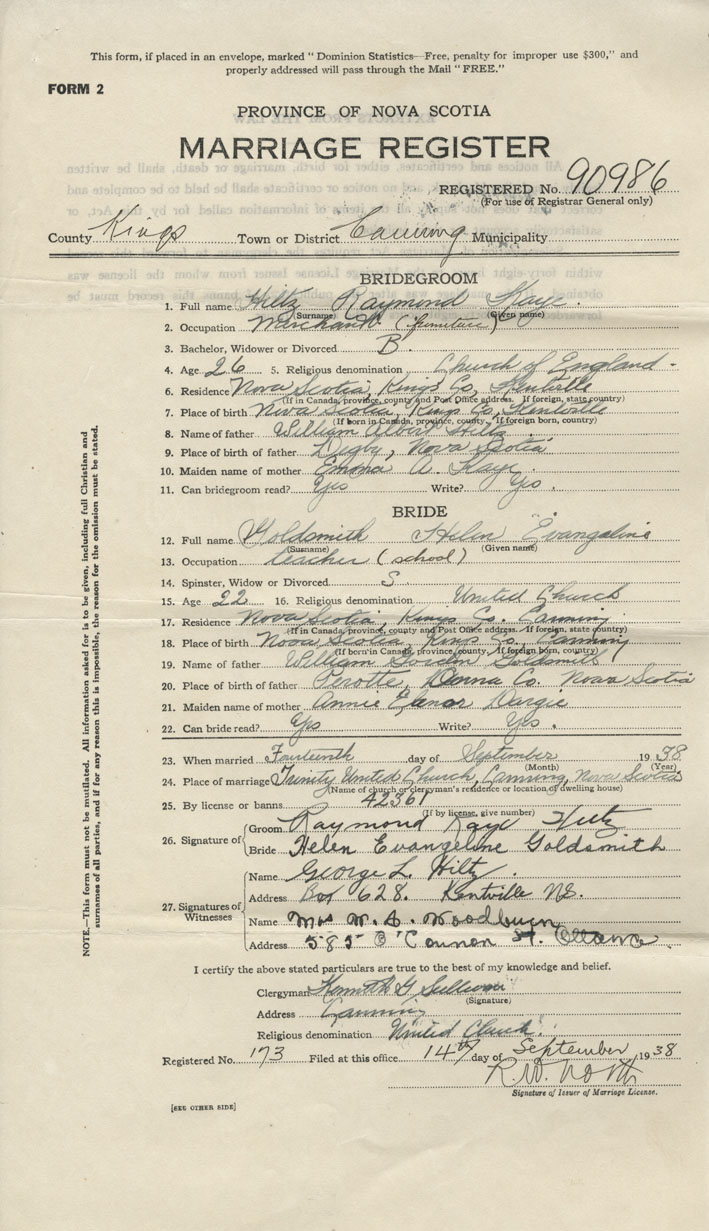 This form, if placed in an envelope, marked "Dominion Statistics—Free, penalty for improper use $300," and
properly addressed will pass through the Mail "FREE."
FORM 2
PROVINCE OF NOVA SCOTIA
MARRIAGE REGISTER
REGISTERED No. 90986
(For use of Registrar General only)
County Kings Town or District Canning Municipality
BRIDEGROOM
1. Full name Hiltz Raymond Kaye
(Surname) (Given name)
2. Occupation Merchant (furniture)
3. Bachelor, Widower or Divorced B.
4. Age 26 5. Religious denomination Church of England.
6. Residence Nova Scotia, Kings Co, Kentville
(If in Canada, province, county and Post Office address. If foreign, state country)
7. Place of birth Nova Scotia, Kings Co, Kentville
(If born in Canada, province, county, If foreign born, country)
8. Name of father William Albert Hiltz
9. Place of birth of father Digby, Nova Scotia
10. Maiden name of mother Emma A. Kaye.
11. Can bridegroom read? Yes Write? Yes.
BRIDE
12. Full name Goldsmith Helen Evangeline
(Surname) (Given name)
13. Occupation teacher (school)
14. Spinster, Widow or Divorced S
15. Age 22 16. Religious denomination United Church
17. Residence Nova Scotia, Kings Co. Canning
(If in Canada, province, county and Post Office address. If foreign, state country)
18. Place of birth Nova Scotia, Kings Co. Canning
(If born in Canada, province, county, If foreign born, country)
19. Name of father William Gordon Goldsmith
20. Place of birth of father Perotte, Co. Nova Scotia
21. Maiden name of mother Annie Dargie
22. Can bride read? Yes Write? Yes.
23. When married Fourteenth day of September 1938
(Month) (Year)
24. Place of marriage Trinity United Church, Canning, Nova Scotia
(Name of church or clergyman's residence or location of dwelling house)
25. By license or banns 42361
(If by license, give number)
26. Signature of Groom Raymond Kaye Hiltz
Bride Helen Evangeline Goldsmith
27. Signatures of Witnesses Name George L. Hiltz.
Address Box 628. Kentville N.S.
Name Mrs W. S. Woodburn
Address 585 O'Connor St. Ottawa
I certify the above stated particulars are true to the best of my knowledge and belief.
Clergyman Kenneth G Sullivan
(Signature)
Address Canning
Religious denomination United Church.
Registered No. 173 Filed at this office 14th day of September, 1938
R.W. North
Signature of Issuer of Marriage License.
[SEE OTHER SIDE]
NOTE.—This form must not be mutilated. All information asked for is to be given, including full Christian and
surnames of all parties, and if for any reason this is impossible, the reason for the omission must be stated.